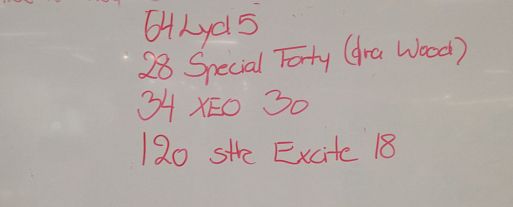 64 Lyd 5
28 Special Forty (dra Wood)
34 XEO 30
120 stk Excite 18